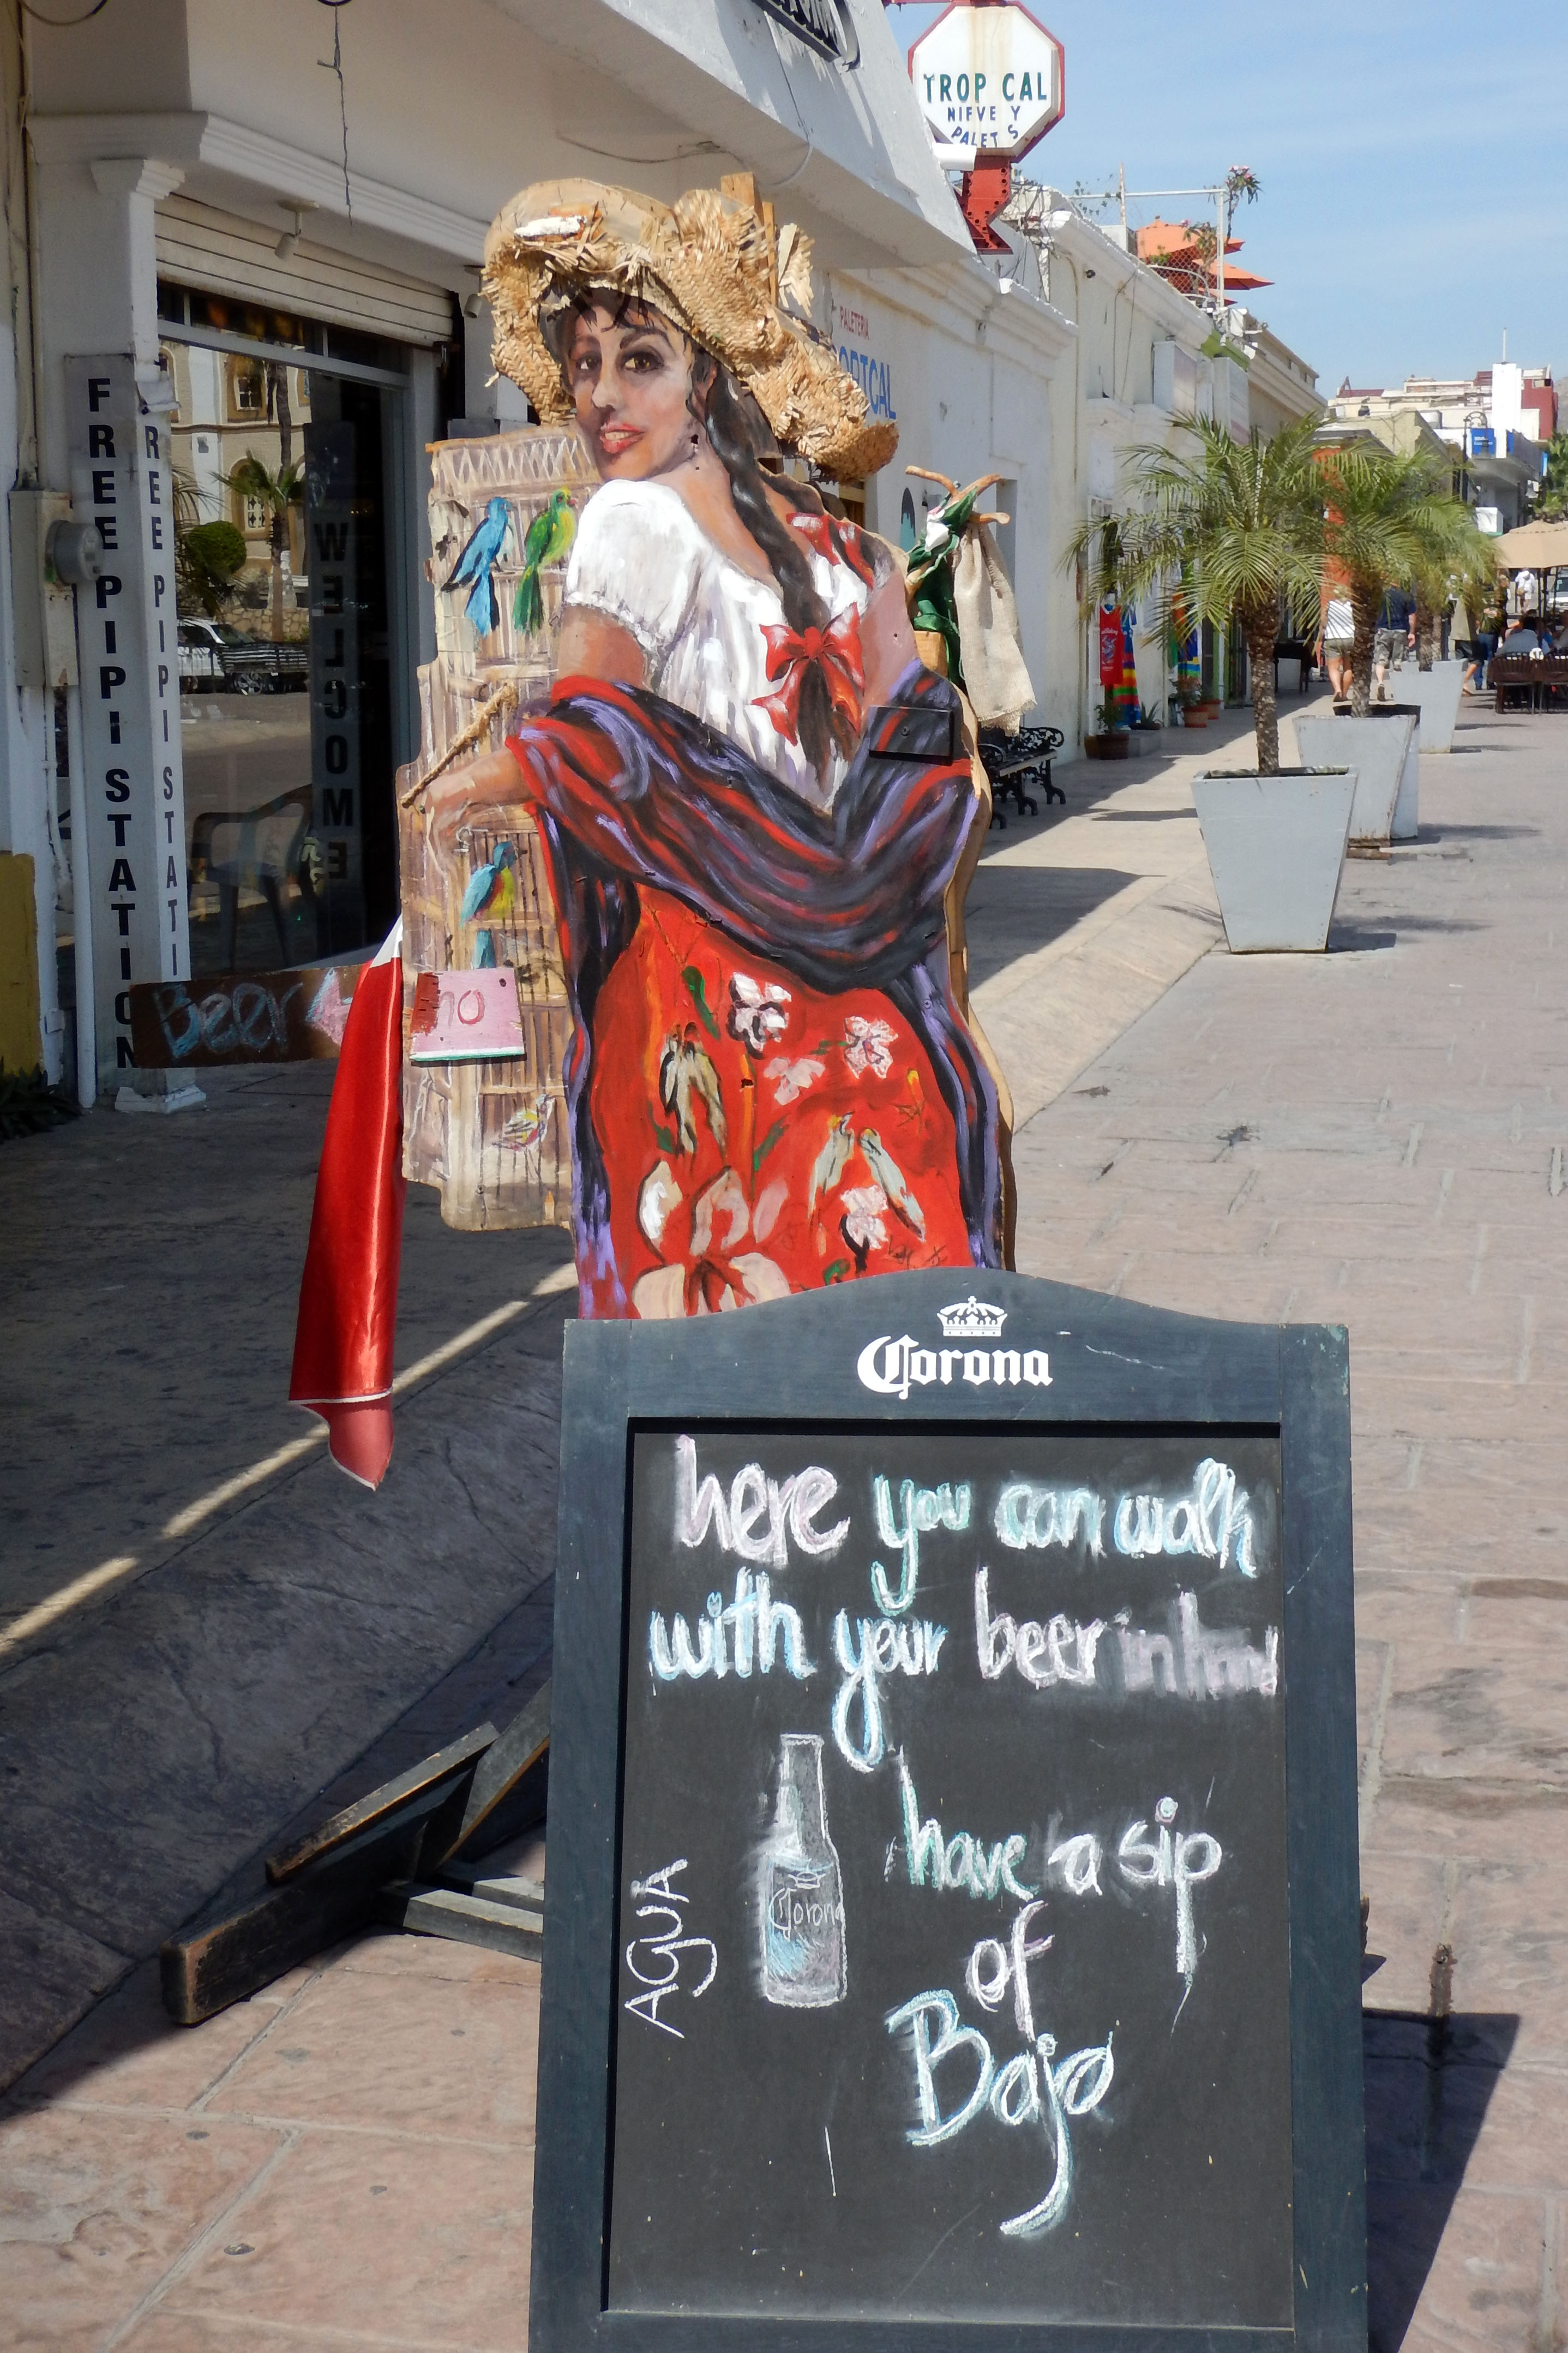 TROP CAL
NIEVE Y
PALET S
PALETERIA
FREE PIPI STATION
FREE PIPI STATI
WELCOME
Beer
no
Corona
here you can walk
with your beer in
have a sip
of
Baja
AGUA
Corona